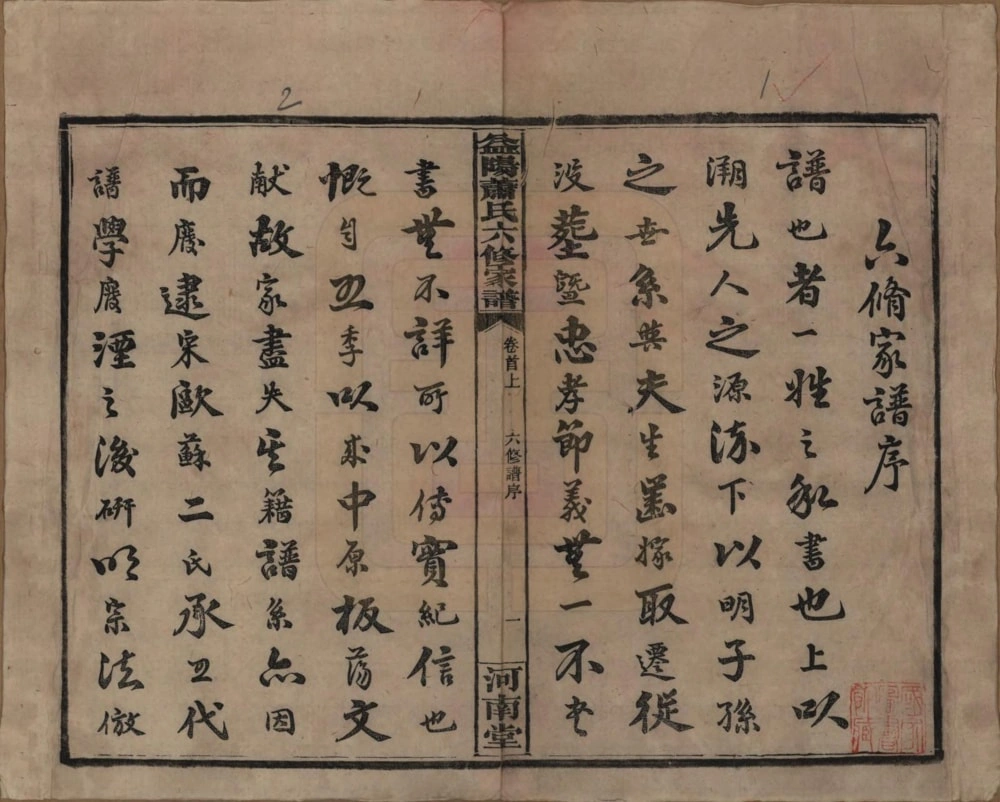 六脩家譜序
譜也者一姓之私書也上以
溯先人之源流下以明子孫
之世系與夫生𡒉嫁取遷徙
没塟曁忠孝節義無一不書
益陽蕭氏六修家譜
卷首上
六修譜序
一
河南堂
書無不詳所以傳實紀信也
慨自五季以來中原板蕩文
献故家盡失其籍譜系亦因
而廢逮宋歐蘇二氏承五代
譜學廢湮之後研明宗法倣
1
2